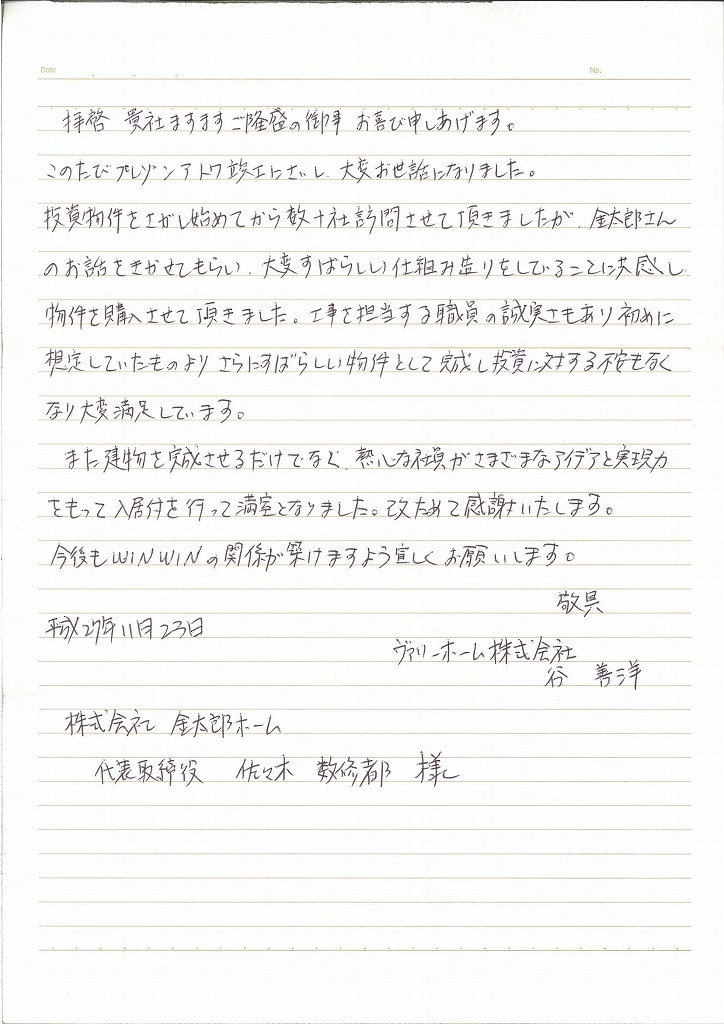 Date
No.
拝啓 貴社ますますご隆盛の御事 お喜び申しあげます。
このたびプレゾンアトワ竣工にさいし、大変お世話になりました。
投資物件をさがし始めてから数十社訪問させて頂きましたが、金太郎さん
のお話をきかせてもらい、大変すばらしい仕組み造りをしていることに共感し
物件を購入させて頂きました。工事を担当する職員の誠実さもあり初めに
想定していたものよりさらにすばらしい物件として完成し投資に対する不安もなく
なり大変満足しています。
また建物を完成させるだけでなく、熱心な社員がさまざまなアイデアと実現力
をもって入居付を行って満室となりました。改ためて感謝いたします。
今後もWINWINの関係が築けますよう宜しくお願いします。
敬具
平成27年11月23日
ヴァリーホーム株式会社
谷 善洋
株式会社 金太郎ホーム
代表取締役 佐々木 数修都 様